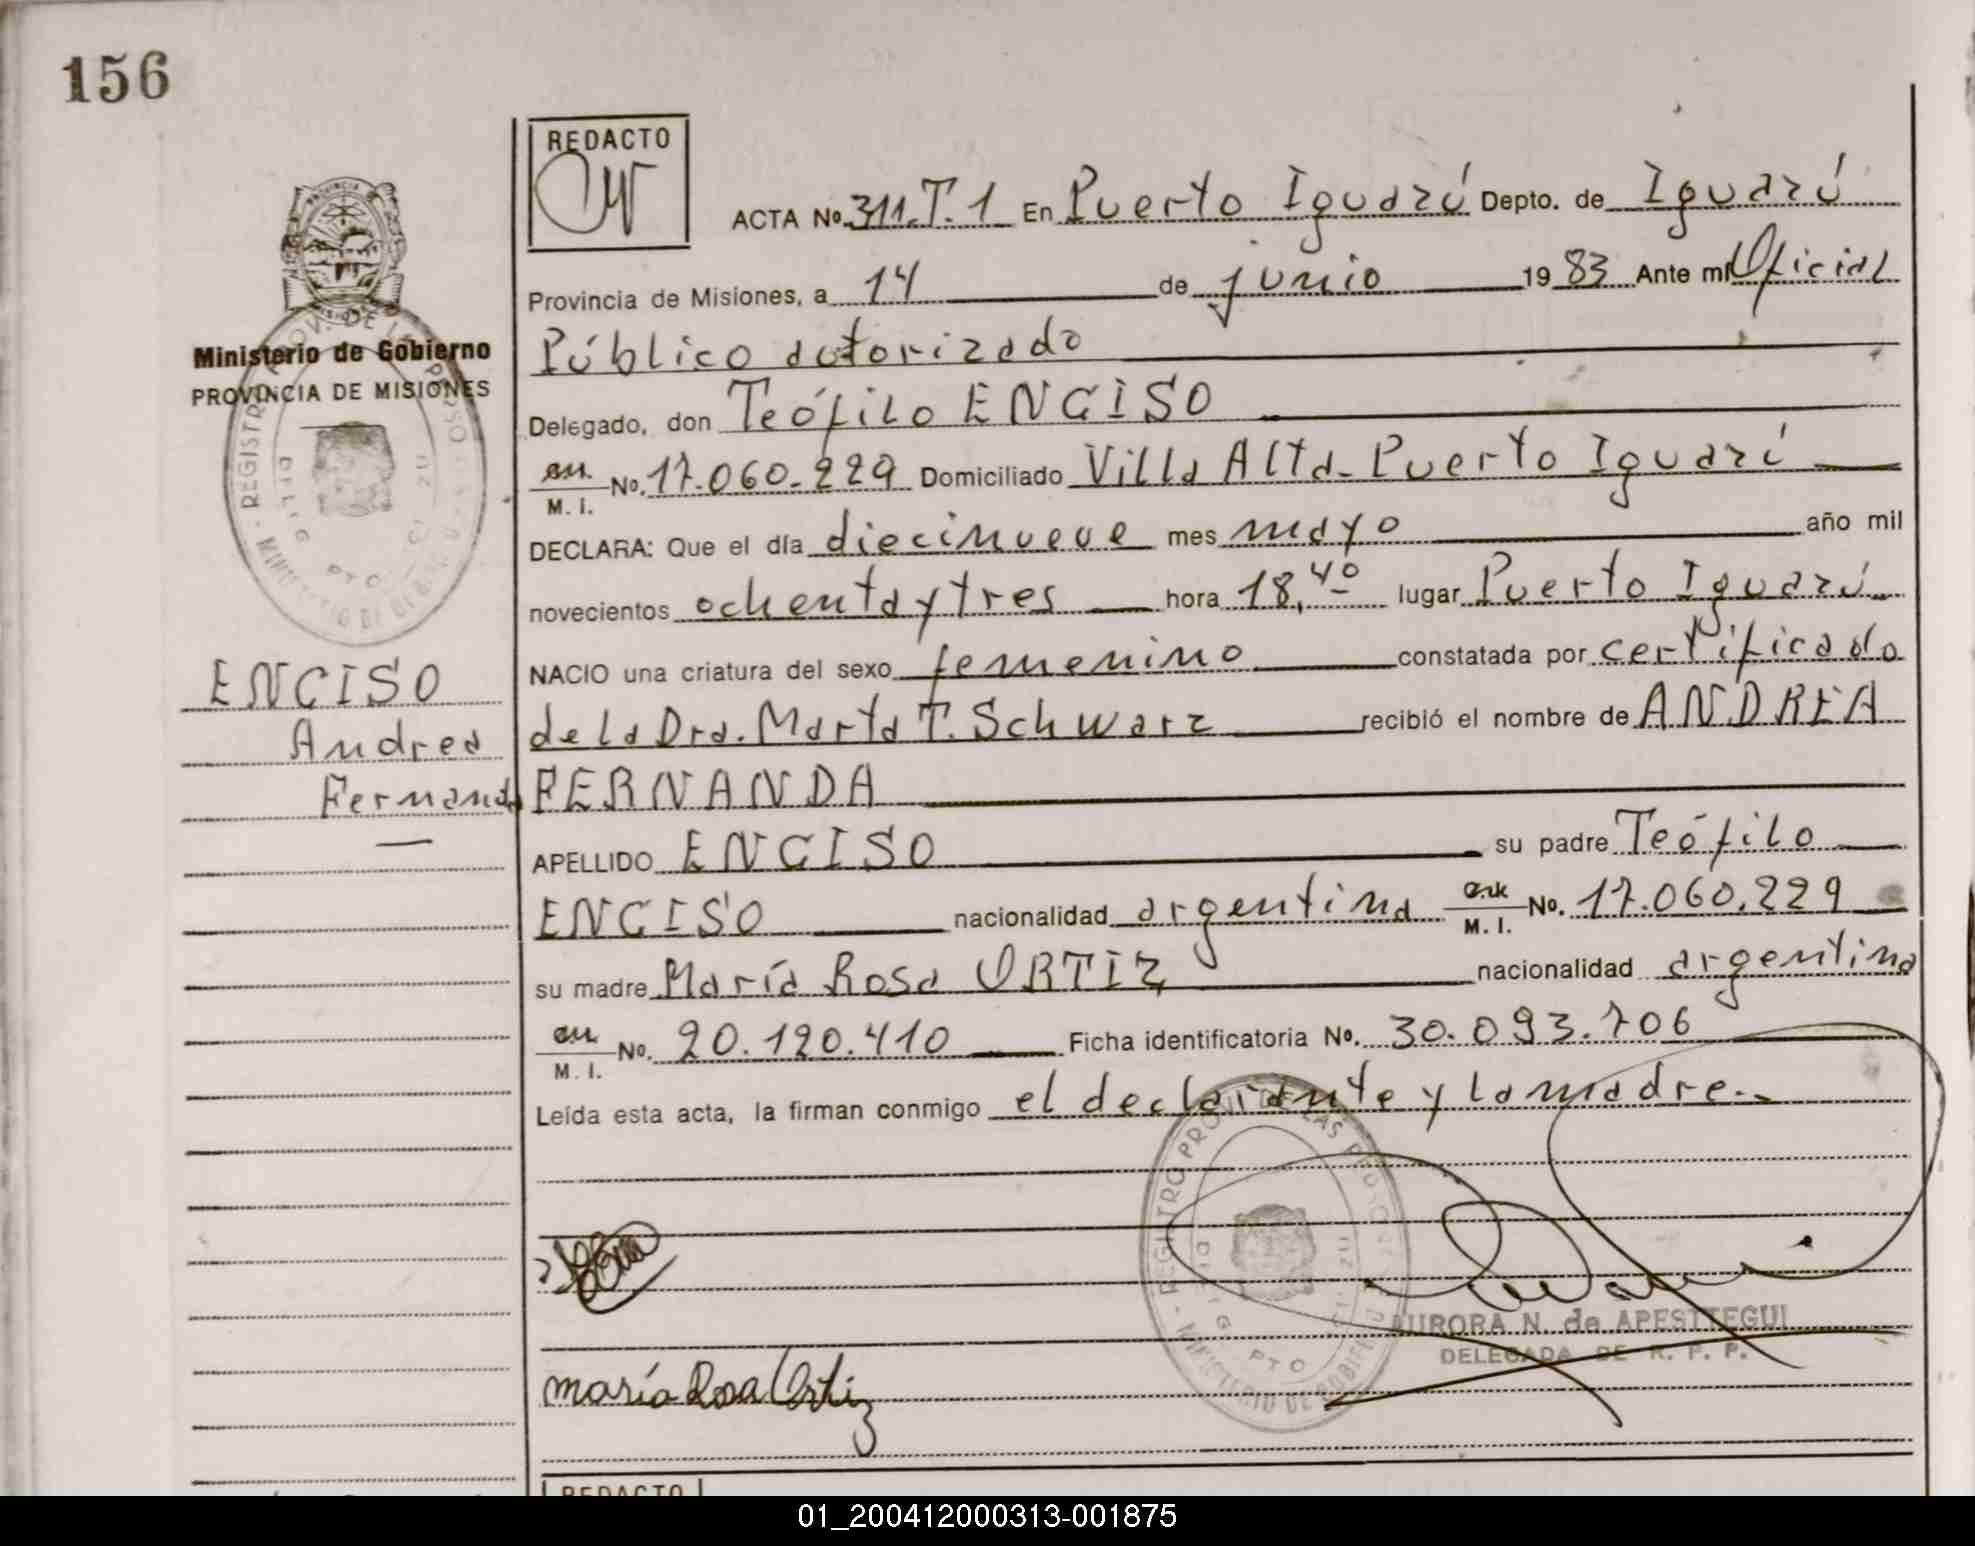 156
REDACTO
ACTA No. 311.T.1 En Puerto Iguazú Depto. de Iguazú
Provincia de Misiones, a 14 de junio 1983 Ante mí Oficial
Ministerio de Gobierno
PROVINCIA DE MISIONES
Público autorizado
Delegado, don Teófilo ENCISO
M. I. No. 17.060.229 Domiciliado Villa Alta-Puerto Iguazú
DECLARA: Que el día diecinueve mes mayo año mil
novecientos ochenta y tres hora 18,40 lugar Puerto Iguazú
NACIO una criatura del sexo femenino constatada por certificado
de la Dra. Marta T. Schwarz recibió el nombre de ANDREA
FERNANDA
ENCISO
Andrea
Fernanda
APELLIDO ENCISO su padre Teófilo
ENCISO nacionalidad argentina M. I. No. 17.060.229
su madre María Rosa ORTIZ nacionalidad argentina
M. I. No. 20.120.410 Ficha identificatoria No. 30.093.706
Leída esta acta, la firman conmigo el declarante y la madre.-
REGISTRO PROV. DE LAS PERSONAS
MINISTERIO DE GOBIERNO
AURORA N. de APESTEGUI
DELEGADA DE R. P. P.
maría Rosa Ortiz
REDACTO
01_200412000313-001875